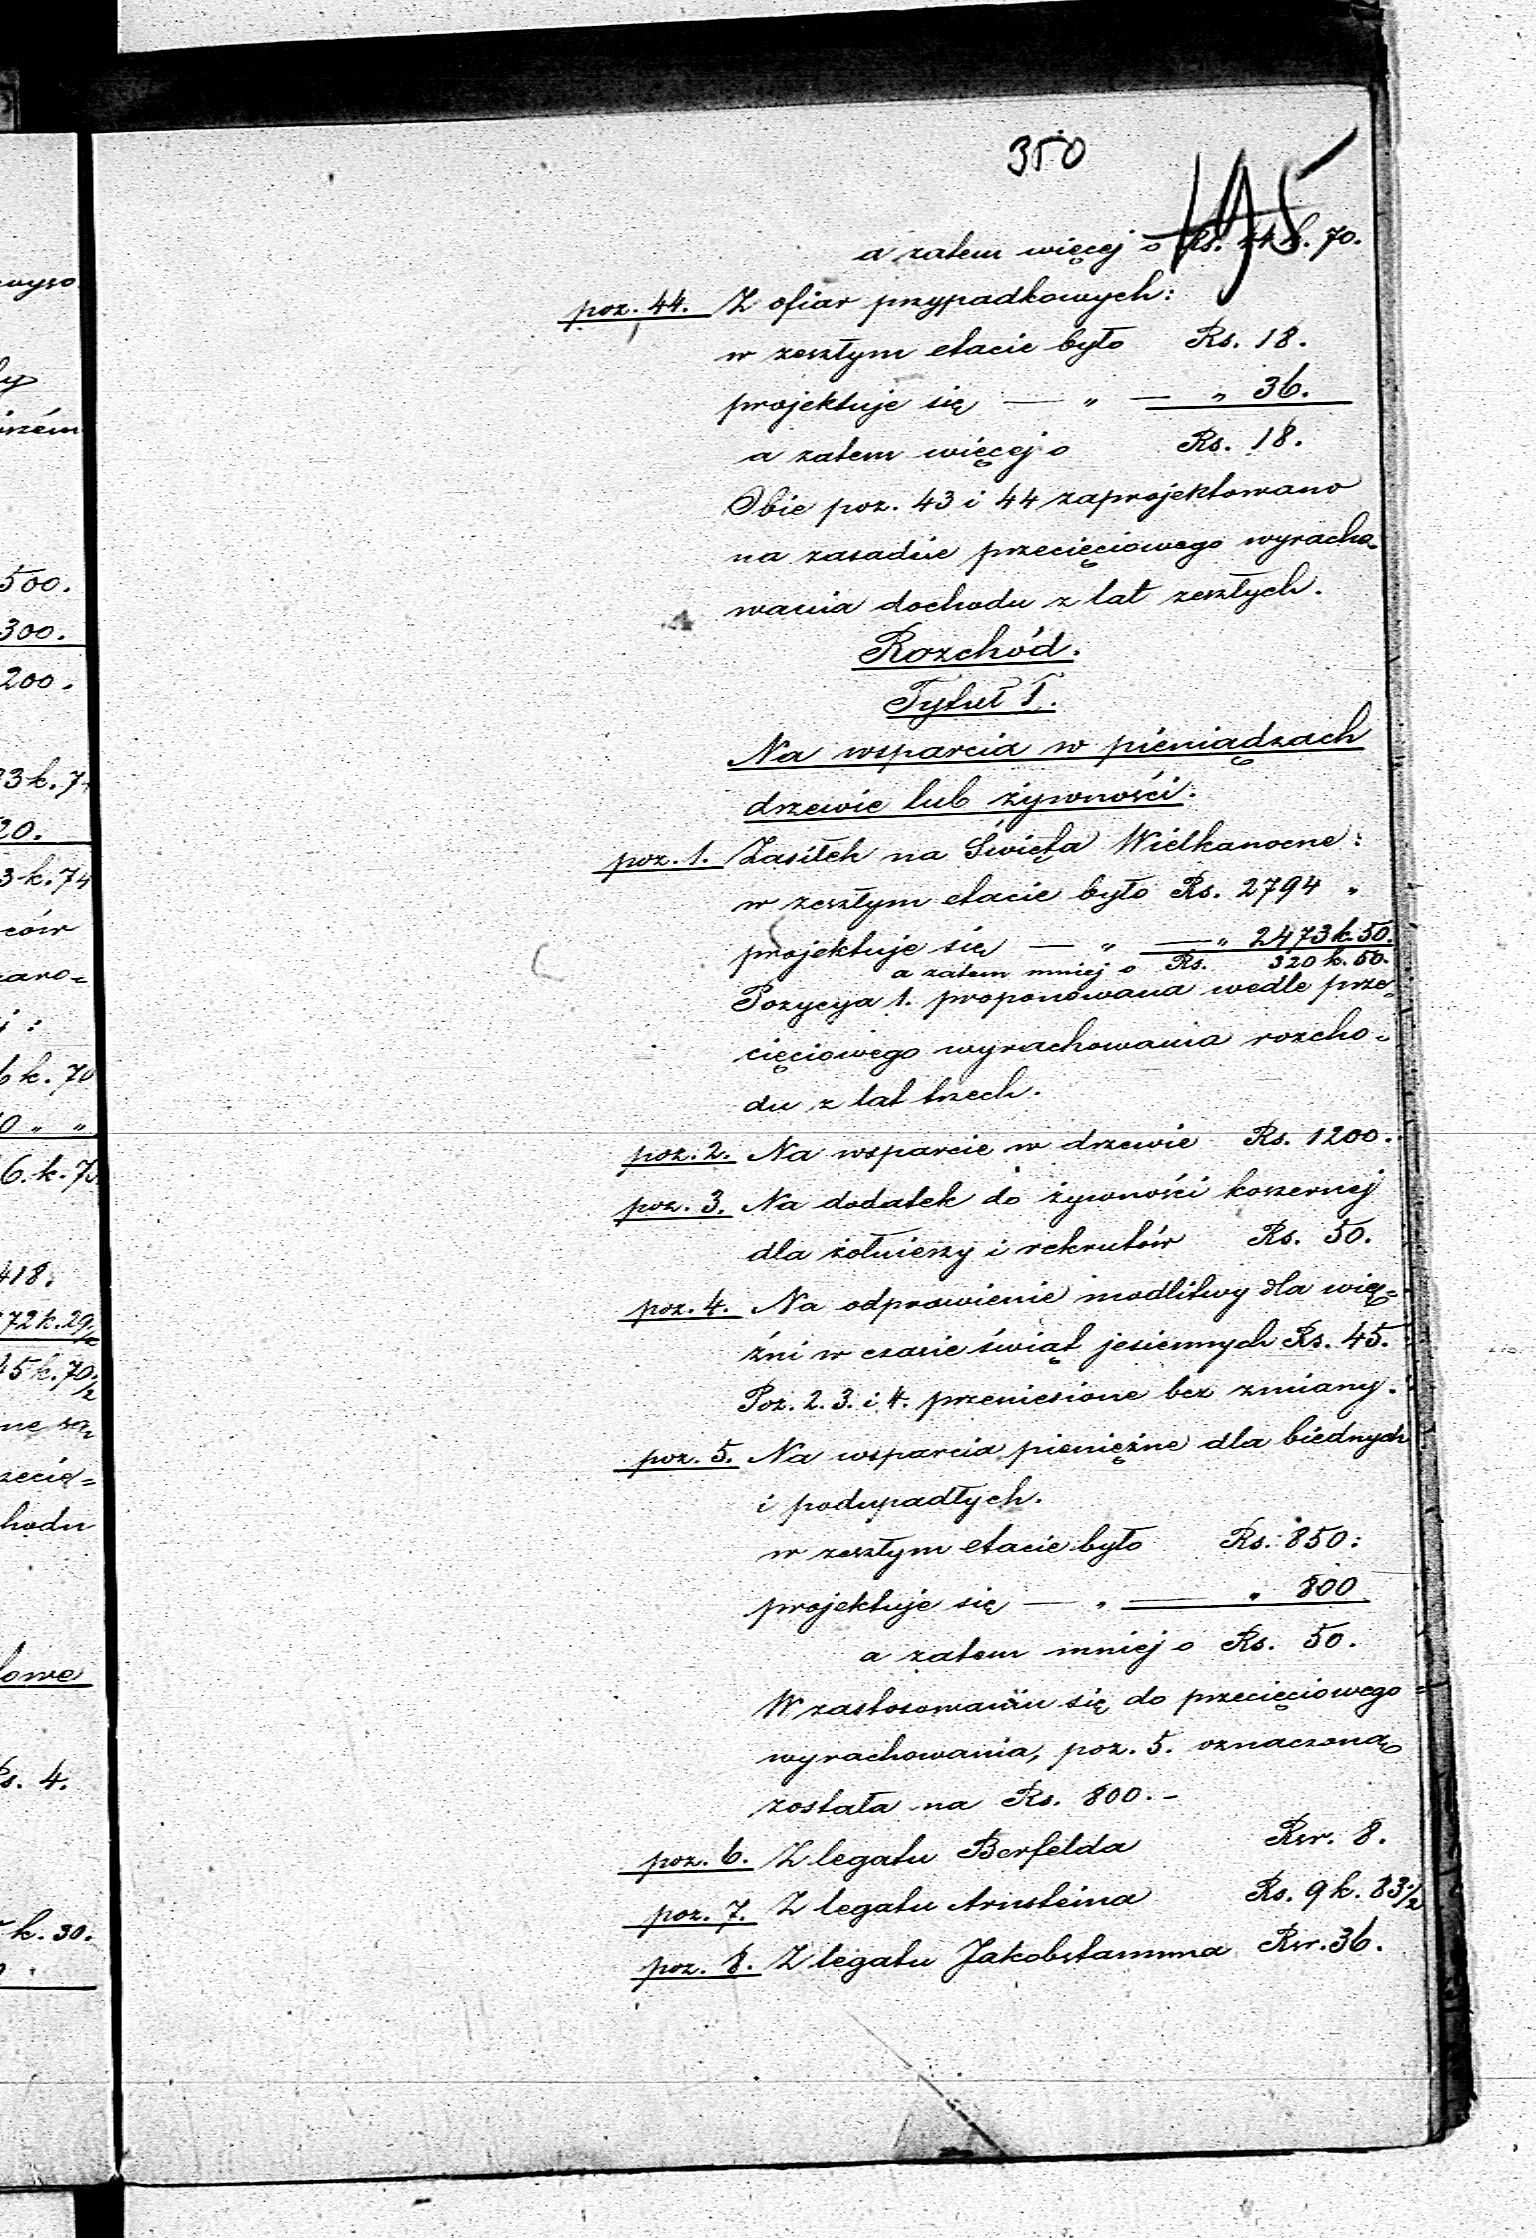 350
195
a zatem więcej o Rs. 44 k. 70.
poz. 44. Z ofiar przypadkowych:
w zeszłym etacie było Rs. 18.
projektuje się — „ — „ 36.
a zatem więcej o Rs. 18.
Obie poz. 43 i 44 zaprojektowano
na zasadzie przecięciowego wyracho-
wania dochodu z lat zeszłych.
Rozchód.
Tytuł I.
Na wsparcia w pieniądzach
drzewie lub żywności.
poz. 1. Zasiłek na Święta Wielkanocne:
w zeszłym etacie było Rs. 2794 „
projektuje się — „ — „ 2473 k. 50.
a zatem mniej o Rs. 320 k. 50.
Pozycya 1. proponowana wedle prze-
cięciowego wyrachowania rozcho-
du z lat trzech.
poz. 2. Na wsparcie w drzewie Rs. 1200.
poz. 3. Na dodatek do żywności koszernej
dla żołnierzy i rekrutów Rs. 50.
poz. 4. Na odprawienie modlitwy dla więź-
źni w czasie świąt jesiennych Rs. 45.
Poz. 2. 3. i 4. przeniesione bez zmiany.
poz. 5. Na wsparcia pieniężne dla biednych
i podupadłych.
w zeszłym etacie było Rs. 850:
projektuje się — „ — „ 800
a zatem mniej o Rs. 50.
W zastosowaniu się do przecięciowego
wyrachowania, poz. 5. oznaczoną
została na Rs. 800.-
poz. 6. Z legatu Berfelda Rsr. 8.
poz. 7. Z legatu Arnsteina Rs. 9 k. 83 1/2
poz. 8. Z legatu Jakobstamma Rsr. 36.